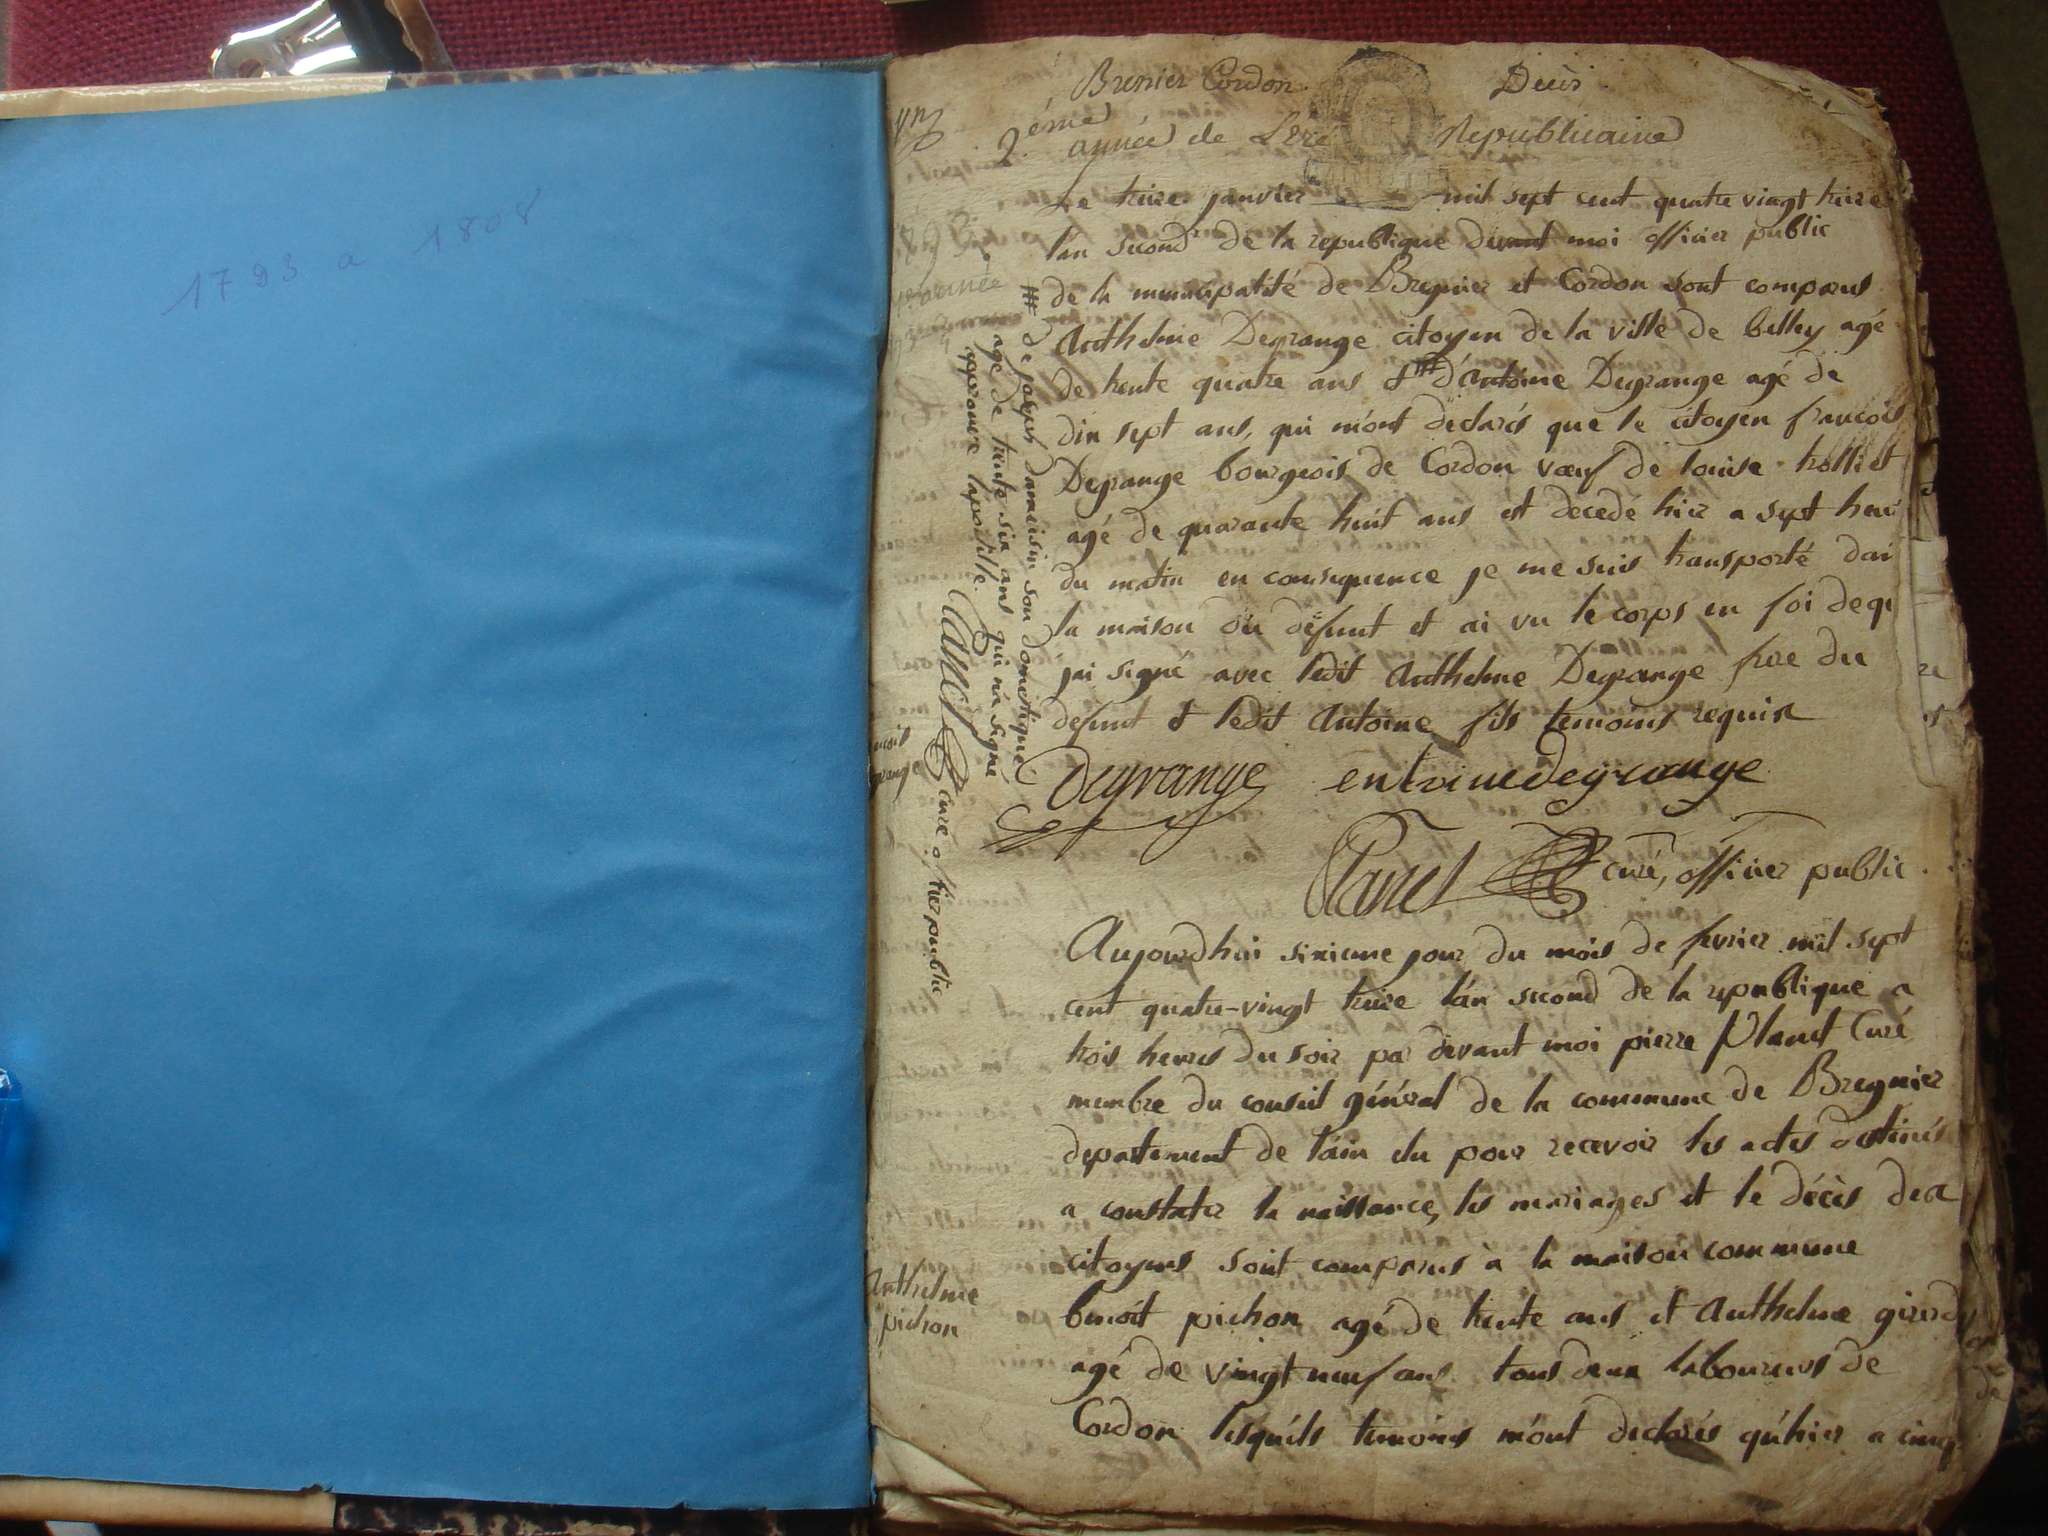 1793 a 1808
Brenier Cordon Décès
2.ème année de L'ere Republicaine
Le treize janvier mil sept cent quatre vingt treize
lan second de la republique devant moi officier public
de la municipalité de Bregnier et Cordon sont comparus
Anthelme Degrange citoyen de la ville de belley agé
de trente quatre ans et ## d'Antoine Degrange agé de
dix sept ans, qui m'ont declarés que le citoyen francois
Degrange bourgeois de Cordon vœuf de louise trolliet
agé de quarante huit ans est decedé hier a sept heur
du matin en consequence je me suis transporté dan
la maison du défunt et ai vu le corps en foi de qu
j'ai signé avec ledit Anthelme Degrange frere du
defunt et ledit Antoine fils temoins requis
Degrange entoinedegrange
Planet curé, officier public
## de joseph son domestique
agé de trente six ans qui n'a signé
approuvé lapostille. Planet
curé officier public
Aujourdhui sixieme jour du mois de fevrier mil sept
cent quatre-vingt treize l'an second de la republique a
trois heures du soir par devant moi pierre Planet Curé
membre du conseil général de la commune de Bregnier
departement de l'ain elu pour recevoir les actes destinés
a constater la naissance, les mariages et le décès des
citoyens sont comparus à la maison commune
Anthelme
pichon
benoit pichon agé de trente ans et Anthelme girerd
agé de vingt neuf ans tous deux laboureurs de
Cordon lesquels temoins m'ont declarés qu'hier a cinq